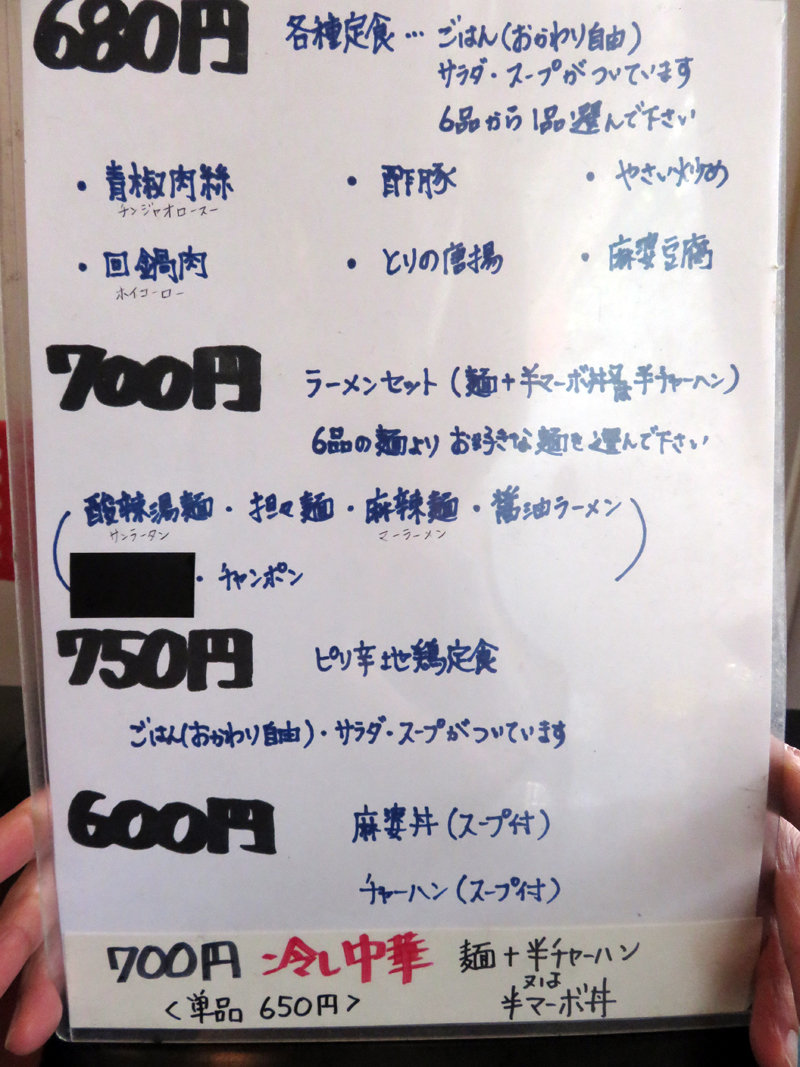 680円 各種定食… ごはん(おかわり自由)
サラダ・スープがついています
6品から1品選んで下さい
・青椒肉絲 ・酢豚 ・やさい炒め
チンジャオロースー
・回鍋肉 ・とりの唐揚 ・麻婆豆腐
ホイコーロー
700円 ラーメンセット(麺+半マーボ丼 半チャーハン)
6品の麺よりお好きな麺を選んで下さい
(酸辣湯麺・担々麺・麻辣麺・醤油ラーメン
サンラータン マーラーメン
・チャンポン)
750円 ピリ辛地鶏定食
ごはん(おかわり自由)・サラダ・スープがついています
600円 麻婆丼(スープ付)
チャーハン(スープ付)
700円 冷し中華 麺+半チャーハン
又は
<単品 650円> 半マーボ丼